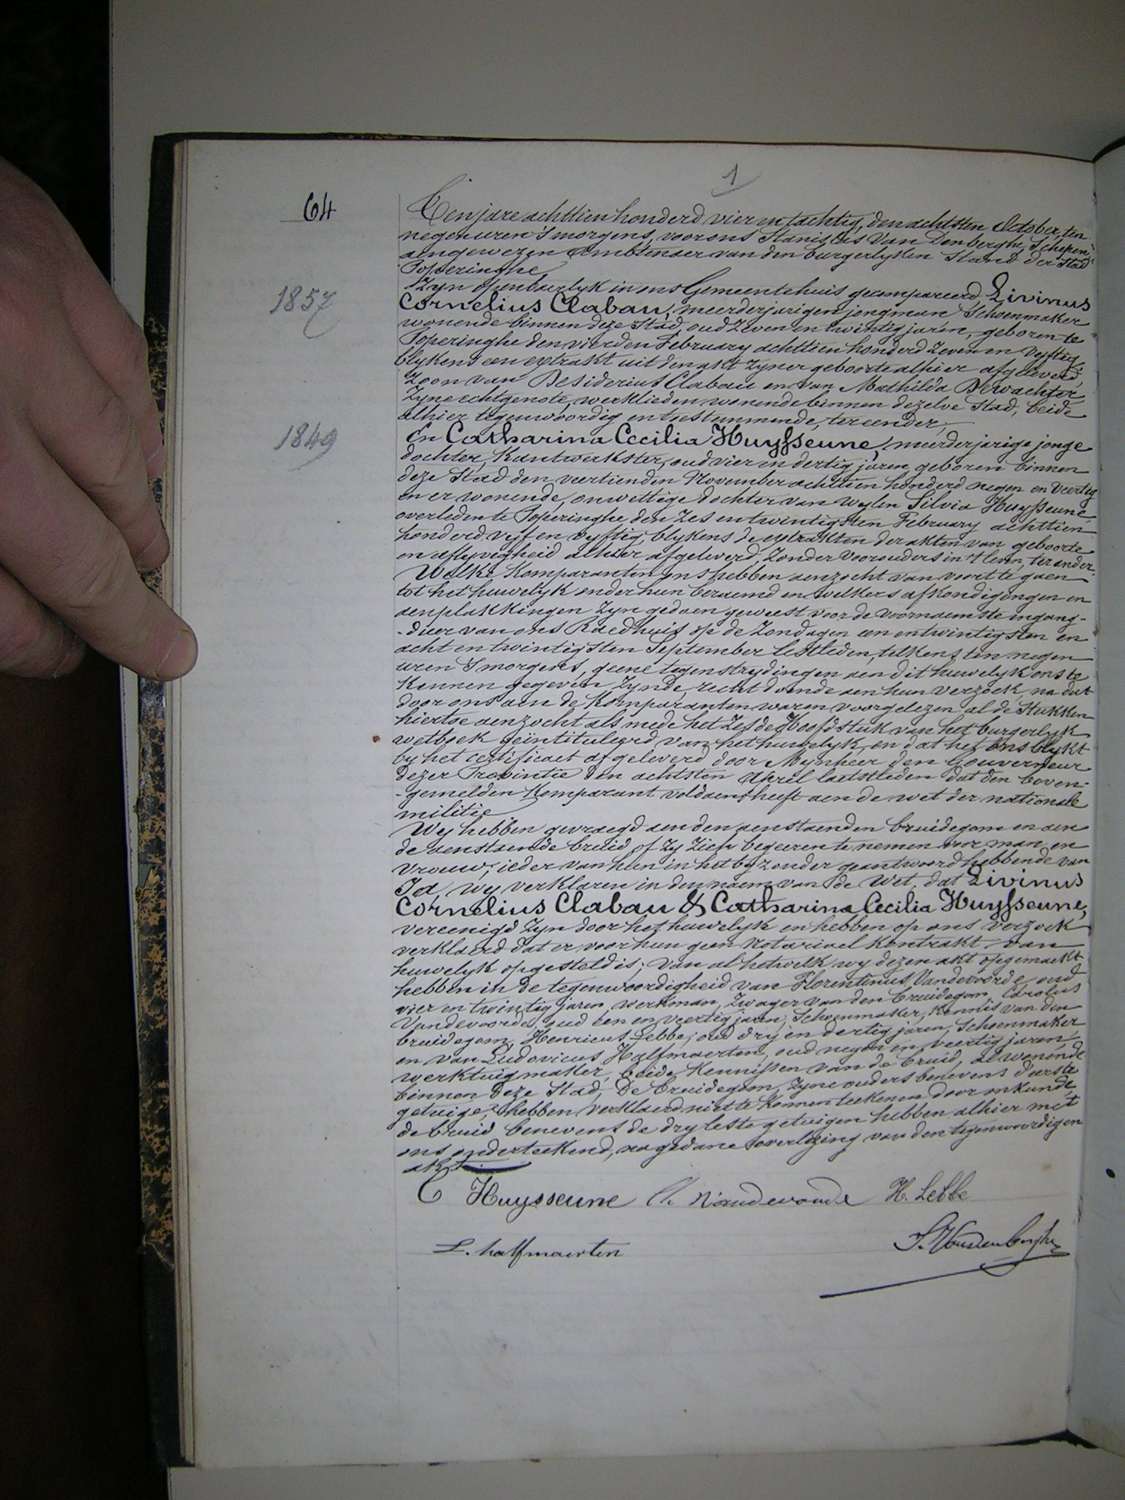 1
64
Ten jare achttien honderd vier en tachtig, den achtsten October, ten
negen uren 's morgens, voor ons Stanislas Van Den Berghe, Schepen,
aengewezen Ambtenaer van den burgerlyken Stand der Stad
Poperinghe,
Zyn openbaerlyk in ons Gemeentehuis gecompareerd, Livinus
1857
Cornelius Clabau, meerderjarigen jongman, Schoenmaker
wonende binnen deze Stad, oud zeven en twintig jaren, geboren te
Poperinghe den vierden February achttien honderd zeven en vyftig,
blykens een extrakt uit den akt zyner geboorte alhier afgeleverd,
Zoon van Desiderius Clabau en van Mathilda Dewachter,
Zyne echtgenote, werklieden, wonende binnen dezelve Stad, beide
alhier tegenwoordig en toestemmende, ter eender,
1849
En Catharina Cecilia Huysseune, meerderjarige jonge
dochter, Kantwerkster, oud vier en dertig jaren, geboren binnen
deze Stad den veertienden November achttien honderd negen en veertig
en er wonende, onwettige dochter van wylen Silvia Huysseune,
overleden te Poperinghe den zes en twintigsten February achttien
honderd vyf en vyftig, blykens de extrakten der akten van geboorte
en aflyvigheid alhier afgeleverd, zonder voorouders in 't leven, ter ander.
Welke Komparanten ons hebben aenzocht van voort te gaen
tot het huwelyk onder hun beraemd en welkers afkondigingen en
aenplakkingen zyn gedaen geweest voor de voornaemste ingang-
-deur van ons Raedhuis op de Zondagen een en twintigsten en
acht en twintigsten September lestleden, telkens ten negen
uren 's morgens, geene tegenstrydingen aen dit huwelyk ons te
kennen gegeven zynde, recht doende aen hun verzoek, na dat
door ons aen de Komparanten waren voorgelezen al de Stukken
hiertoe aenzocht als mede het Zesde Hoofdstuk van het burgerlyk
wetboek geintituleerd van het huwelyk, en dat het ons blykt
by het certificaet afgeleverd door Mynheer den Gouverneur
dezer Provintie den achtsten April laetstleden dat den boven-
-gemelden Komparant voldaen heeft aen de wet der nationale
militie
Wy hebben gevraegd aen den aenstaenden bruidegom en aen
de aenstaende bruid of zy zich begeeren te nemen voor man en
vrouw, ieder van hun in het byzonder geantwoord hebbende van
Ja, wy verklaren in den naem van de Wet, dat Livinus
Cornelius Clabau & Catharina Cecilia Huysseune,
vereenigd zyn door het huwelyk en hebben op ons verzoek
verklaerd dat er voor hun geen Notariael Kontrakt van
huwelyk opgesteld is; van al hetwelk wy dezen akt opgemaekt
hebben in de tegenwoordigheid van Florentinus Vandevoorde, oud
vier en twintig jaren, werkman, zwager van den bruidegom, Carolus
Vandevoorde, oud een en veertig jaren, Schoenmaker, Kennis van den
bruidegom, Henricus Lebbe, oud dry en dertig jaren, Schoenmaker
en van Ludovicus Halfmaerten, oud negen en veertig jaren,
werktuigmaker, beide Kennissen van de bruid, al wonende
binnen deze Stad. De bruidegom, zyne ouders benevens d'eerste
getuige, hebben verklaerd niet te konnen teekenen door onkunde
de bruid benevens de dry leste getuigen hebben alhier met
ons onderteekend, na gedane overlezing van den tegenwoordigen
akt.
C Huysseune Ch Vandevoorde H. Lebbe
L. halfmaerten S. Vandenberghe